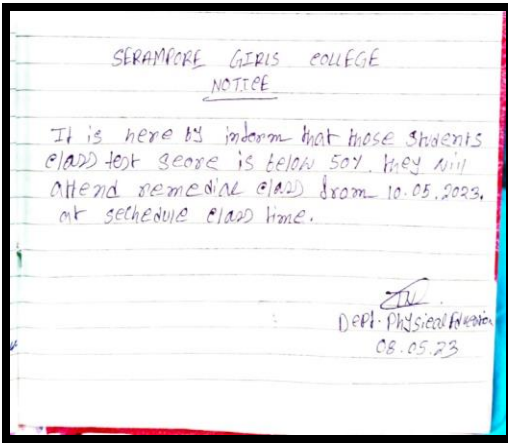 SERAMPORE GIRLS COLLEGE
NOTICE
It is here by inform that those students
class test score is below 50%. they will
attend remedial class from 10.05.2023.
at sechedule class time.
Dept. Physical Education
08.05.23